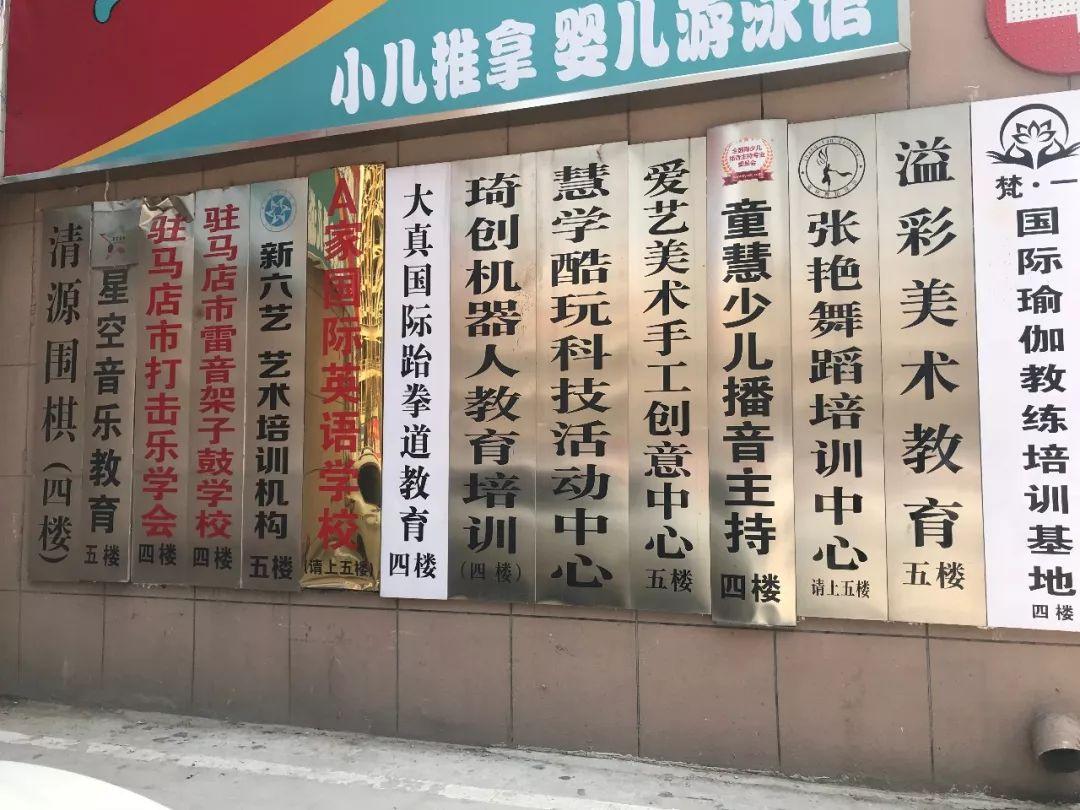 小儿推拿 婴儿游泳馆
清源围棋(四楼)
星空音乐教育
五楼
驻马店市打击乐学会
四楼
驻马店市雷音架子鼓学校
四楼
新六艺 艺术培训机构
五楼
A家国际英语学校
(请上五楼)
大真国际跆拳道教育
四楼
琦创机器人教育培训
(四楼)
慧学酷玩科技活动中心
爱艺美术手工创意中心
五楼
童慧少儿播音主持
四楼
张艳舞蹈培训中心
请上五楼
溢彩美术教育
五楼
梵·一
国际瑜伽教练培训基地
四楼